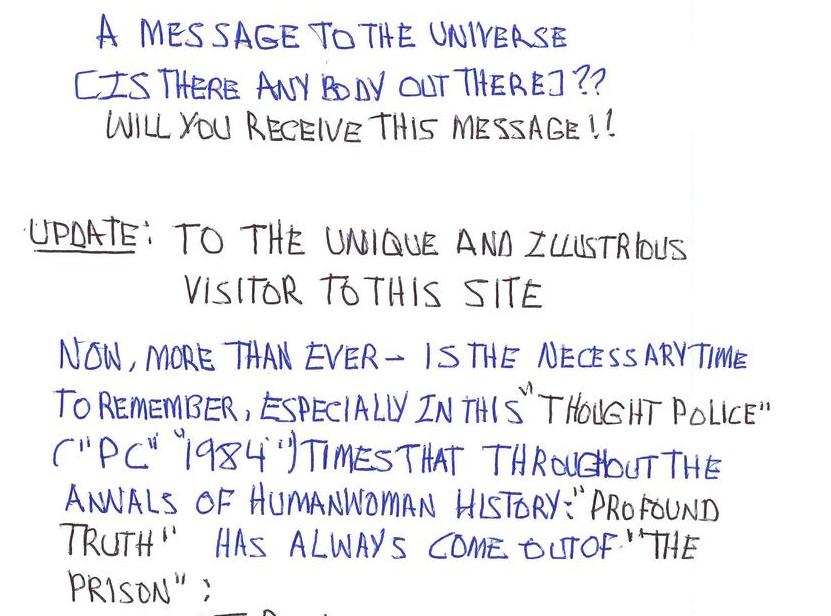 A MESSAGE TO THE UNIVERSE
[IS THERE ANY BODY OUT THERE] ??
WILL YOU RECEIVE THIS MESSAGE!!
UPDATE: TO THE UNIQUE AND ILLUSTRIOUS
VISITOR TO THIS SITE
NOW, MORE THAN EVER - IS THE NECESSARY TIME
TO REMEMBER, ESPECIALLY IN THIS "THOUGHT POLICE"
("PC" "1984") TIMES THAT THROUGHOUT THE
ANNALS OF HUMANWOMAN HISTORY: "PROFOUND
TRUTH" HAS ALWAYS COME OUT OF "THE
PRISON" :